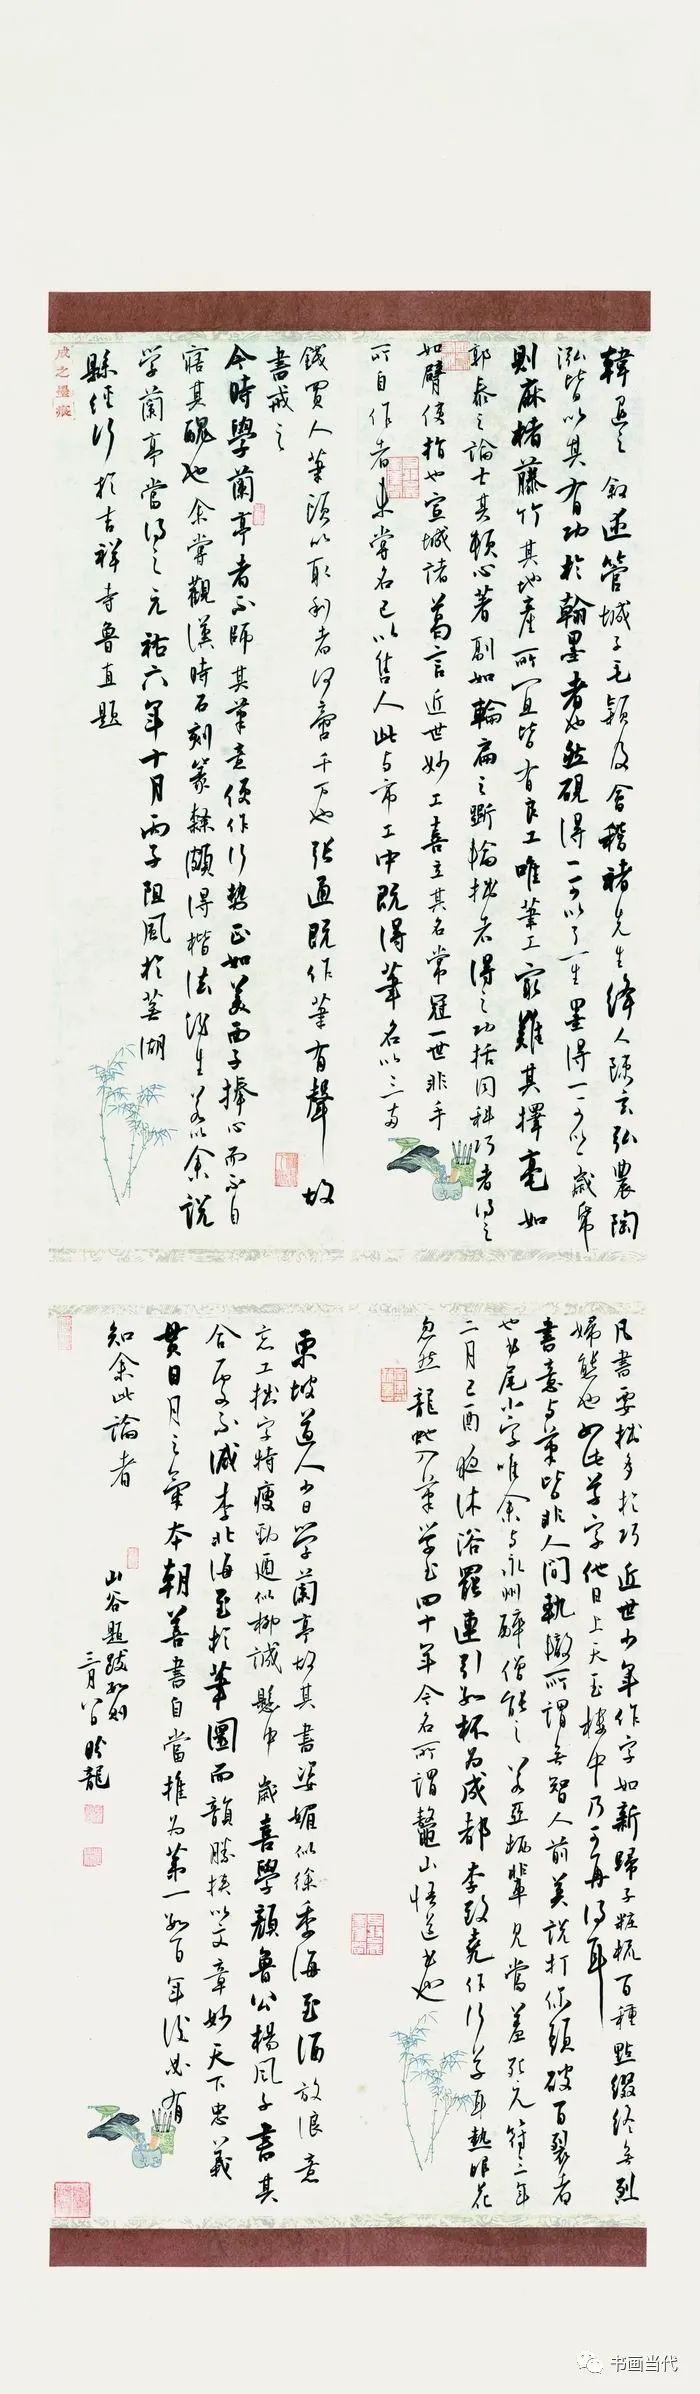 韓退之敘述管城子毛穎及會稽褚先生絳人陳玄弘農陶
泓皆以其有功於翰墨者也然硯得一可以了一生墨得一可以歲席
則麻楮藤竹其地產所宜皆有良工唯筆工最難其擇毫如
郭泰之論士其頓心著副如輪扁之斲輪拙者得之功括同科巧者得之
如臂使指也宣城諸葛言近世妙工喜立其名常冠一世非手
所自作者未嘗名己以售人此與市工中既得筆名以三兩
錢買人筆頭以取利者何啻千萬也張通既作筆有聲故
書戒之
今時學蘭亭者不師其筆意便作行勢正如美西子捧心而不自
寤其醜也余嘗觀漢時石刻篆隸頗得楷法後生若以余說
學蘭亭當得之元祐六年十月丙子阻風於蕪湖
縣經行於吉祥寺魯直題
成之墨痕
凡書要拙多於巧近世少年作字如新歸子粧梳百種點綴終無烈
婦態也此草字他日上天玉樓中乃可再得耳
書意與筆皆非人間軌轍所謂無智人前莫說打你頭破百裂者
也卷尾小字唯余與永州醉僧能之若亞栖輩見當羞死元符三年
二月己酉夜沐浴罷連引數杯為成都李致堯作行草耳熱眼花
忽然龍蛇入筆學書四十年今名所謂鼇山悟道書也
東坡道人少日學蘭亭故其書姿媚似徐季海至酒放浪意
忘工拙字特瘦勁迺似柳誠懸中歲喜學顏魯公楊風子書其
合處不減李北海至於筆圜而韻勝挾以文章妙天下忠義
貫日月之氣本朝善書自當推為第一數百年後必有
知余此論者
山谷題跋數則
三月
龍
书画当代